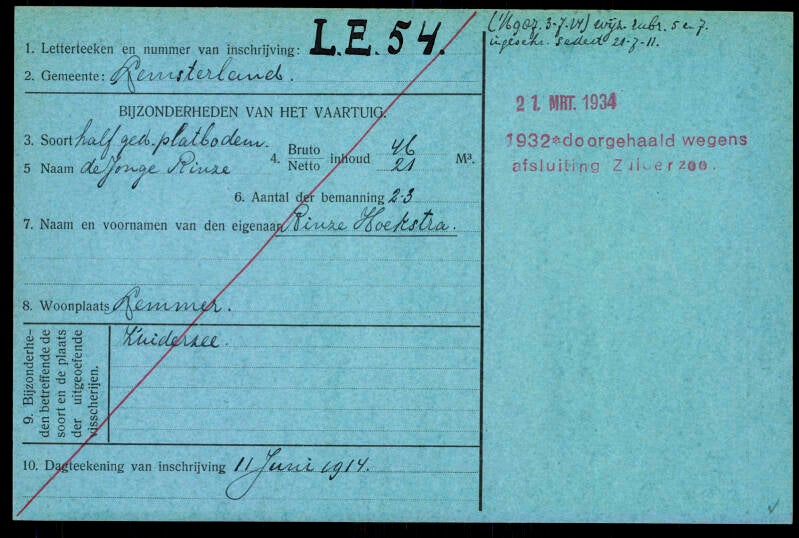 1. Letterteeken en nummer van inschrijving: L.E. 54.
2. Gemeente: Lemsterland.
BIJZONDERHEDEN VAN HET VAARTUIG.
3. Soort half ged. platbodem.
4. Bruto Netto inhoud 46 21 M³.
5 Naam de Jonge Rinze
6. Aantal der bemanning 2-3
7. Naam en voornamen van den eigenaar Rinze Hoekstra.
8. Woonplaats Lemmer.
9. Bijzonderhe-
den betreffende de
soort en de plaats
der uitgeoefende
visscherijen.
Zuiderzee.
10. Dagteekening van inschrijving 11 Juni 1914.
3-7-14) wijz. rubr. 5 en 7.
ingeschr. sedert 21-7-11.
21 MRT. 1934
1932*doorgehaald wegens
afsluiting Zuiderzee.